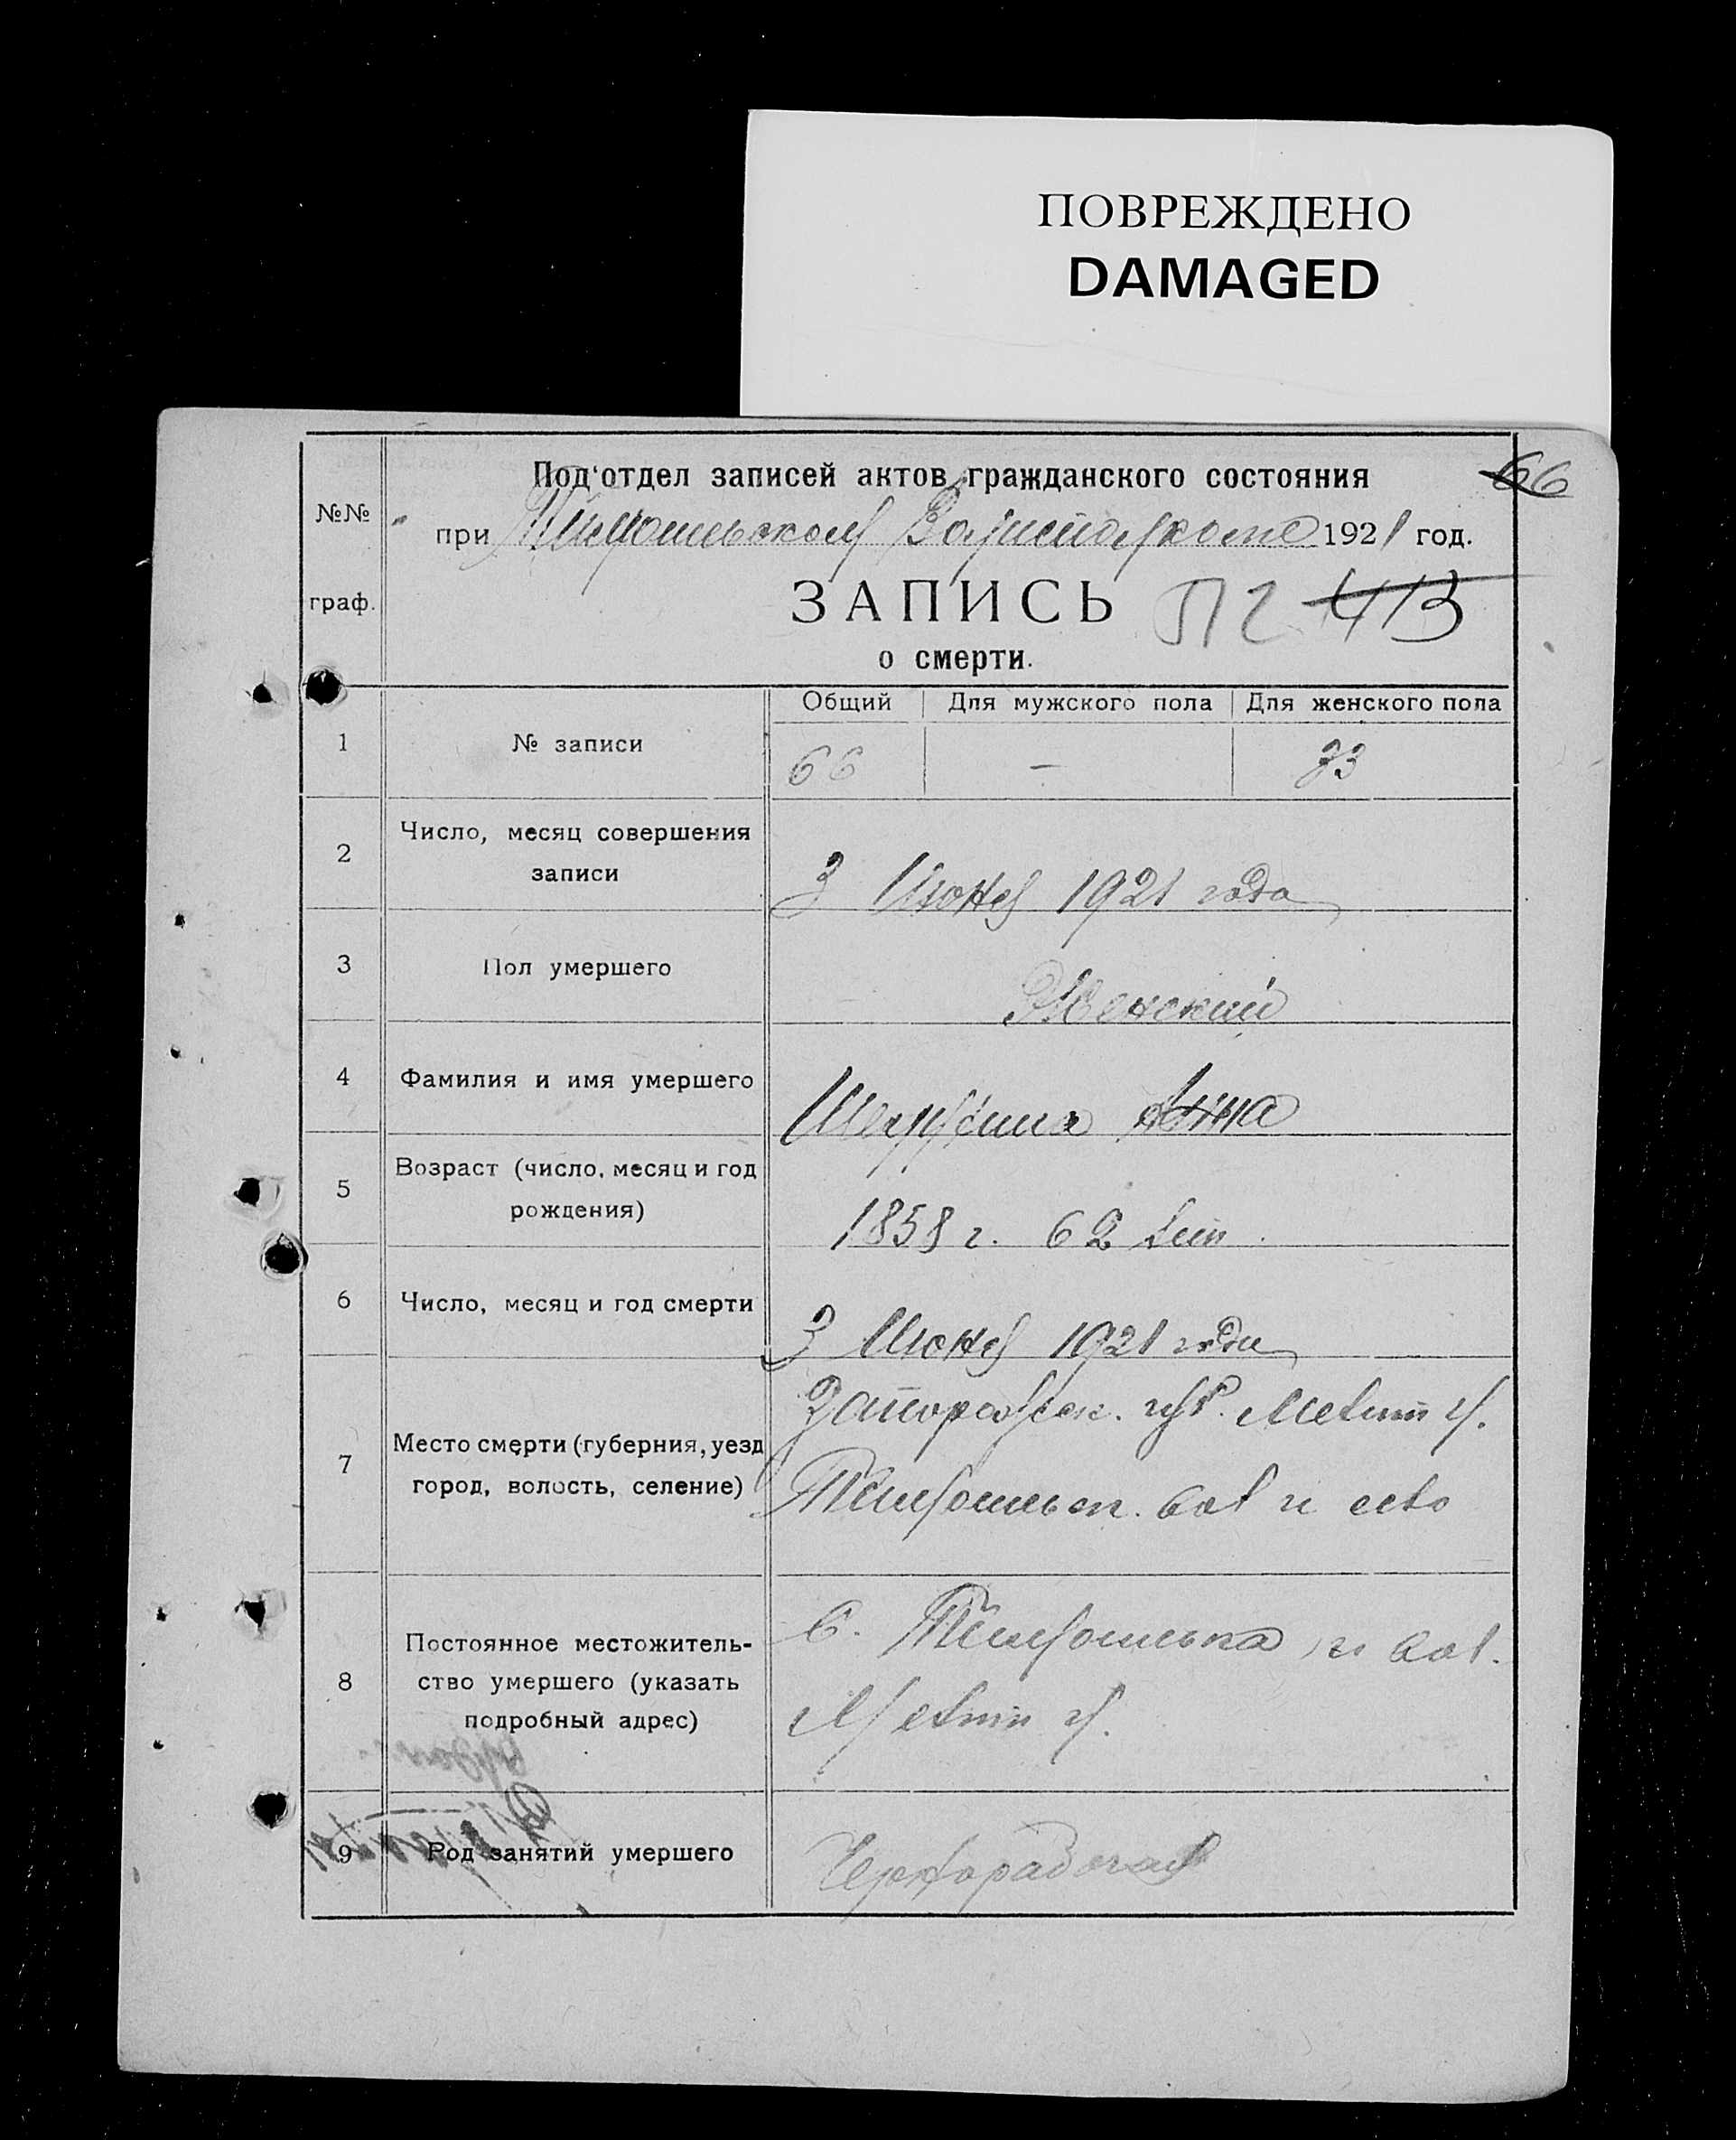 ПОВРЕЖДЕНО
DAMAGED
66
Под'отдел записей актов гражданского состояния
№№ граф.
при 1921 год.
ЗАПИСЬ
413
о смерти.
Общий Для мужского пола Для женского пола
1 № записи 66 — 33
2 Число, месяц совершения
записи
3 Июня 1921 года
3 Пол умершего Женский
4 Фамилия и имя умершего Анна
5 Возраст (число, месяц и год
рождения)
1858 г. 62 лет
6 Число, месяц и год смерти 3 Июня 1921 года
7 Место смерти (губерния, уезд
город, волость, селение)
Запорожск. губ. Мелит у.
вол и село
8 Постоянное местожитель-
ство умершего (указать
подробный адрес)
С. и вол.
Мелит у.
9 Род занятий умершего Чернорабочая